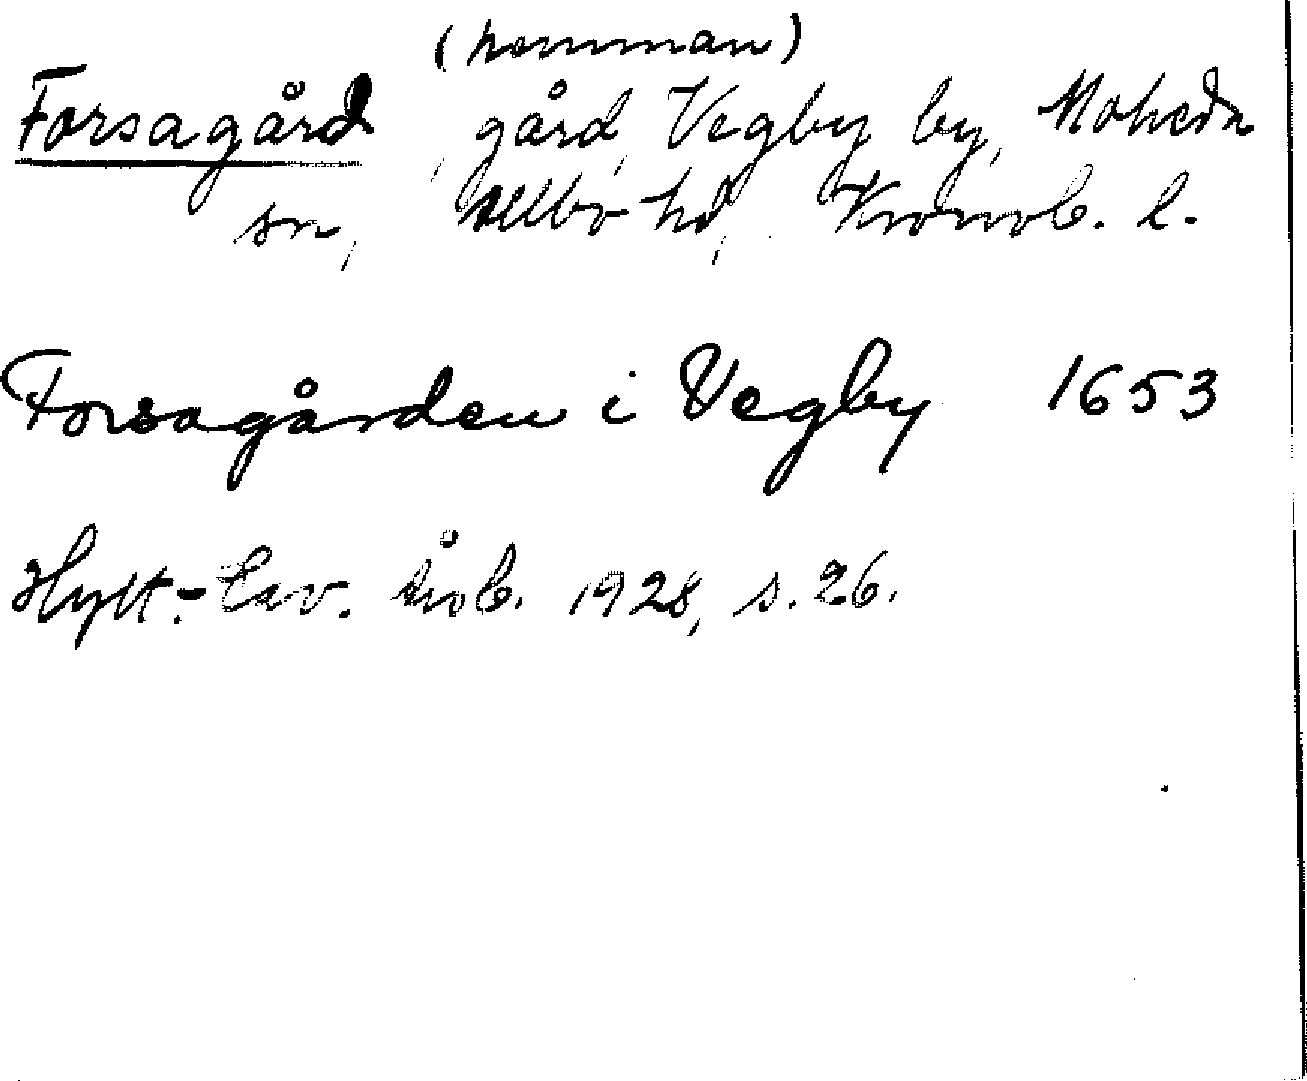 (hemman)
Forsagård, gård, Vegby by, Moheda
sn, Allbo hd, Kronob. l.
Forsagården i Vegby 1653
Hylt.-Cav. årb. 1928, s. 26.